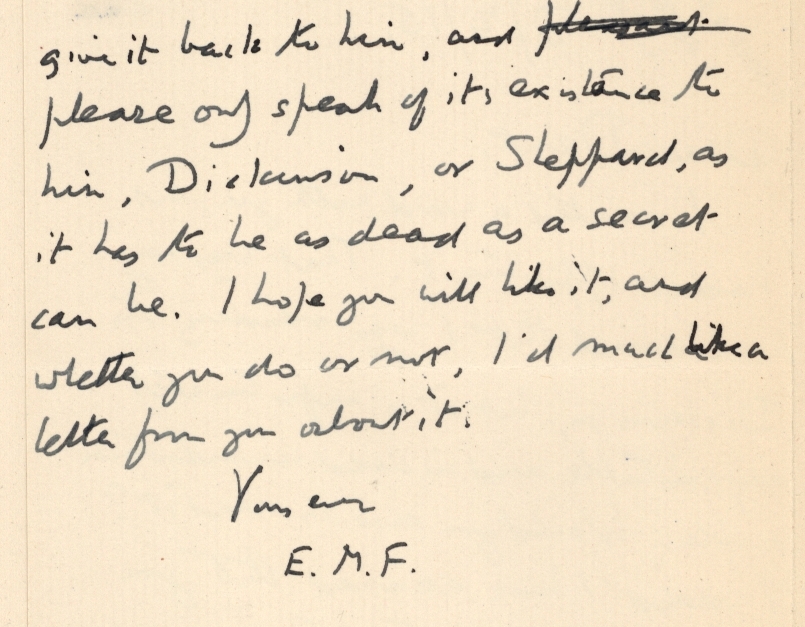 give it back to him, and
please only speak of its existence to
him, Dickinson, or Sheppard, as
it has to be as dead as a secret
can be. I hope you will like it, and
whether you do or not, I'd much like a
letter from you about it.
Yours ever
E. M. F.